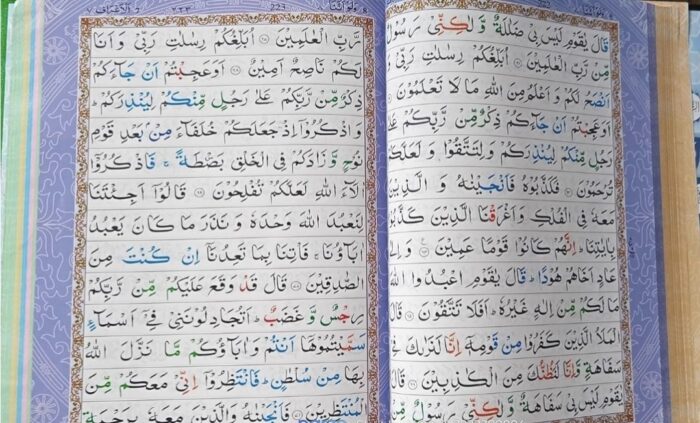 قَالَ يٰقَوْمِ لَيْسَ بِيْ ضَلٰلَةٌ وَّ لٰكِنِّيْ رَسُوْلٌ
مِّنْ رَّبِّ الْعٰلَمِيْنَ ۝ اُبَلِّغُكُمْ رِسٰلٰتِ رَبِّيْ وَ
اَنْصَحُ لَكُمْ وَ اَعْلَمُ مِنَ اللّٰهِ مَا لَا تَعْلَمُوْنَ ۝
اَوَعَجِبْتُمْ اَنْ جَآءَكُمْ ذِكْرٌ مِّنْ رَّبِّكُمْ عَلٰى
رَجُلٍ مِّنْكُمْ لِيُنْذِرَكُمْ وَلِتَتَّقُوْا وَ لَعَلَّكُمْ
تُرْحَمُوْنَ ۝ فَكَذَّبُوْهُ فَاَنْجَيْنٰهُ وَ الَّذِيْنَ
مَعَهٗ فِي الْفُلْكِ وَ اَغْرَقْنَا الَّذِيْنَ كَذَّبُوْا
بِاٰيٰتِنَا ؕ اِنَّهُمْ كَانُوْا قَوْمًا عَمِيْنَ ۝ وَ اِلٰى
عَادٍ اَخَاهُمْ هُوْدًا ؕ قَالَ يٰقَوْمِ اعْبُدُوا اللّٰهَ
مَا لَكُمْ مِّنْ اِلٰهٍ غَيْرُهٗ ؕ اَفَلَا تَتَّقُوْنَ ۝ قَالَ
الْمَلَاُ الَّذِيْنَ كَفَرُوْا مِنْ قَوْمِهٖۤ اِنَّا لَنَرٰىكَ فِيْ
سَفَاهَةٍ وَّ اِنَّا لَنَظُنُّكَ مِنَ الْكٰذِبِيْنَ ۝ قَالَ
يٰقَوْمِ لَيْسَ بِيْ سَفَاهَةٌ وَّ لٰكِنِّيْ رَسُوْلٌ مِّنْ
ولو اننا ٨ ٢٢٣ 223 الاعراف ٧
رَّبِّ الْعٰلَمِيْنَ ۝ اُبَلِّغُكُمْ رِسٰلٰتِ رَبِّيْ وَ اَنَا
لَكُمْ نَاصِحٌ اَمِيْنٌ ۝ اَوَعَجِبْتُمْ اَنْ جَآءَكُمْ
ذِكْرٌ مِّنْ رَّبِّكُمْ عَلٰى رَجُلٍ مِّنْكُمْ لِيُنْذِرَكُمْ ؕ
وَ اذْكُرُوْۤا اِذْ جَعَلَكُمْ خُلَفَآءَ مِنْۢ بَعْدِ قَوْمِ
نُوْحٍ وَّ زَادَكُمْ فِي الْخَلْقِ بَصْۜطَةً ۚ فَاذْكُرُوْۤا
اٰلَآءَ اللّٰهِ لَعَلَّكُمْ تُفْلِحُوْنَ ۝ قَالُوْۤا اَجِئْتَنَا
لِنَعْبُدَ اللّٰهَ وَحْدَهٗ وَ نَذَرَ مَا كَانَ يَعْبُدُ
اٰبَآؤُنَا ۚ فَاْتِنَا بِمَا تَعِدُنَاۤ اِنْ كُنْتَ مِنَ
الصّٰدِقِيْنَ ۝ قَالَ قَدْ وَقَعَ عَلَيْكُمْ مِّنْ رَّبِّكُمْ
رِجْسٌ وَّ غَضَبٌ ؕ اَتُجَادِلُوْنَنِيْ فِيْۤ اَسْمَآءٍ
سَمَّيْتُمُوْهَاۤ اَنْتُمْ وَ اٰبَآؤُكُمْ مَّا نَزَّلَ اللّٰهُ
بِهَا مِنْ سُلْطٰنٍ ؕ فَانْتَظِرُوْۤا اِنِّيْ مَعَكُمْ مِّنَ
الْمُنْتَظِرِيْنَ ۝ فَاَنْجَيْنٰهُ وَالَّذِيْنَ مَعَهٗ بِرَحْمَةٍ